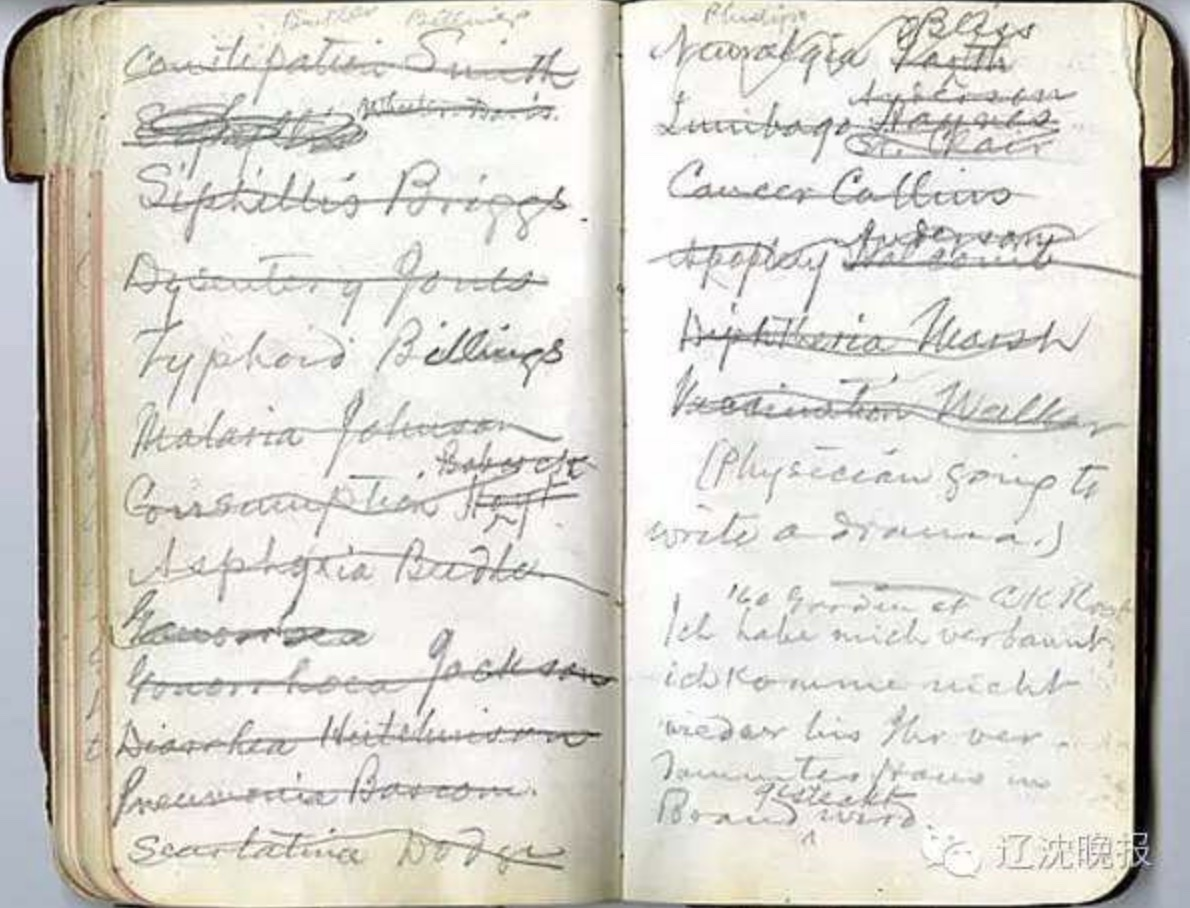 Butler Billings
Constipation Smith
Wheeler Davis.
Siphillis Briggs.
Dysentery Jones
Typhoid Billings
Malaria Johnson
Babcock
Consumption Hoyt
Asphyxia Beadle
Gonorrhoea Jackson
Diarrhea Hutchinson
Pneumonia Bascom.
Scarlatina Dodge
Phelips
Bliss
Neuralgia
Anderson
Lumbago Haynes
St. Clair
Cancer Collins
Anderson
Apoplexy Holcomb
Diphtheria Marsh
Vaccination Walker
(Physician going to
write a drama.)
Ich habe mich verbannt;
ich komme nicht
wieder bis Ihr ver-
dammtes Haus in
gesteckt
Brand wird.
辽沈晚报